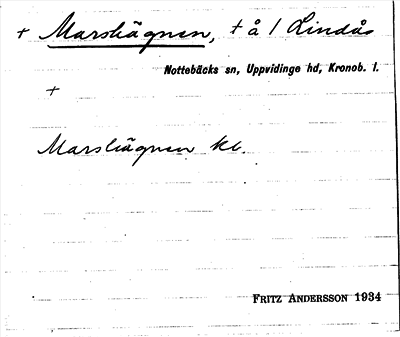 + Marshägnen, + å 1 Lindås
Nottebäcks sn, Uppvidinge hd, Kronob. l.
+
Marshägnen kl.
FRITZ ANDERSSON 1934